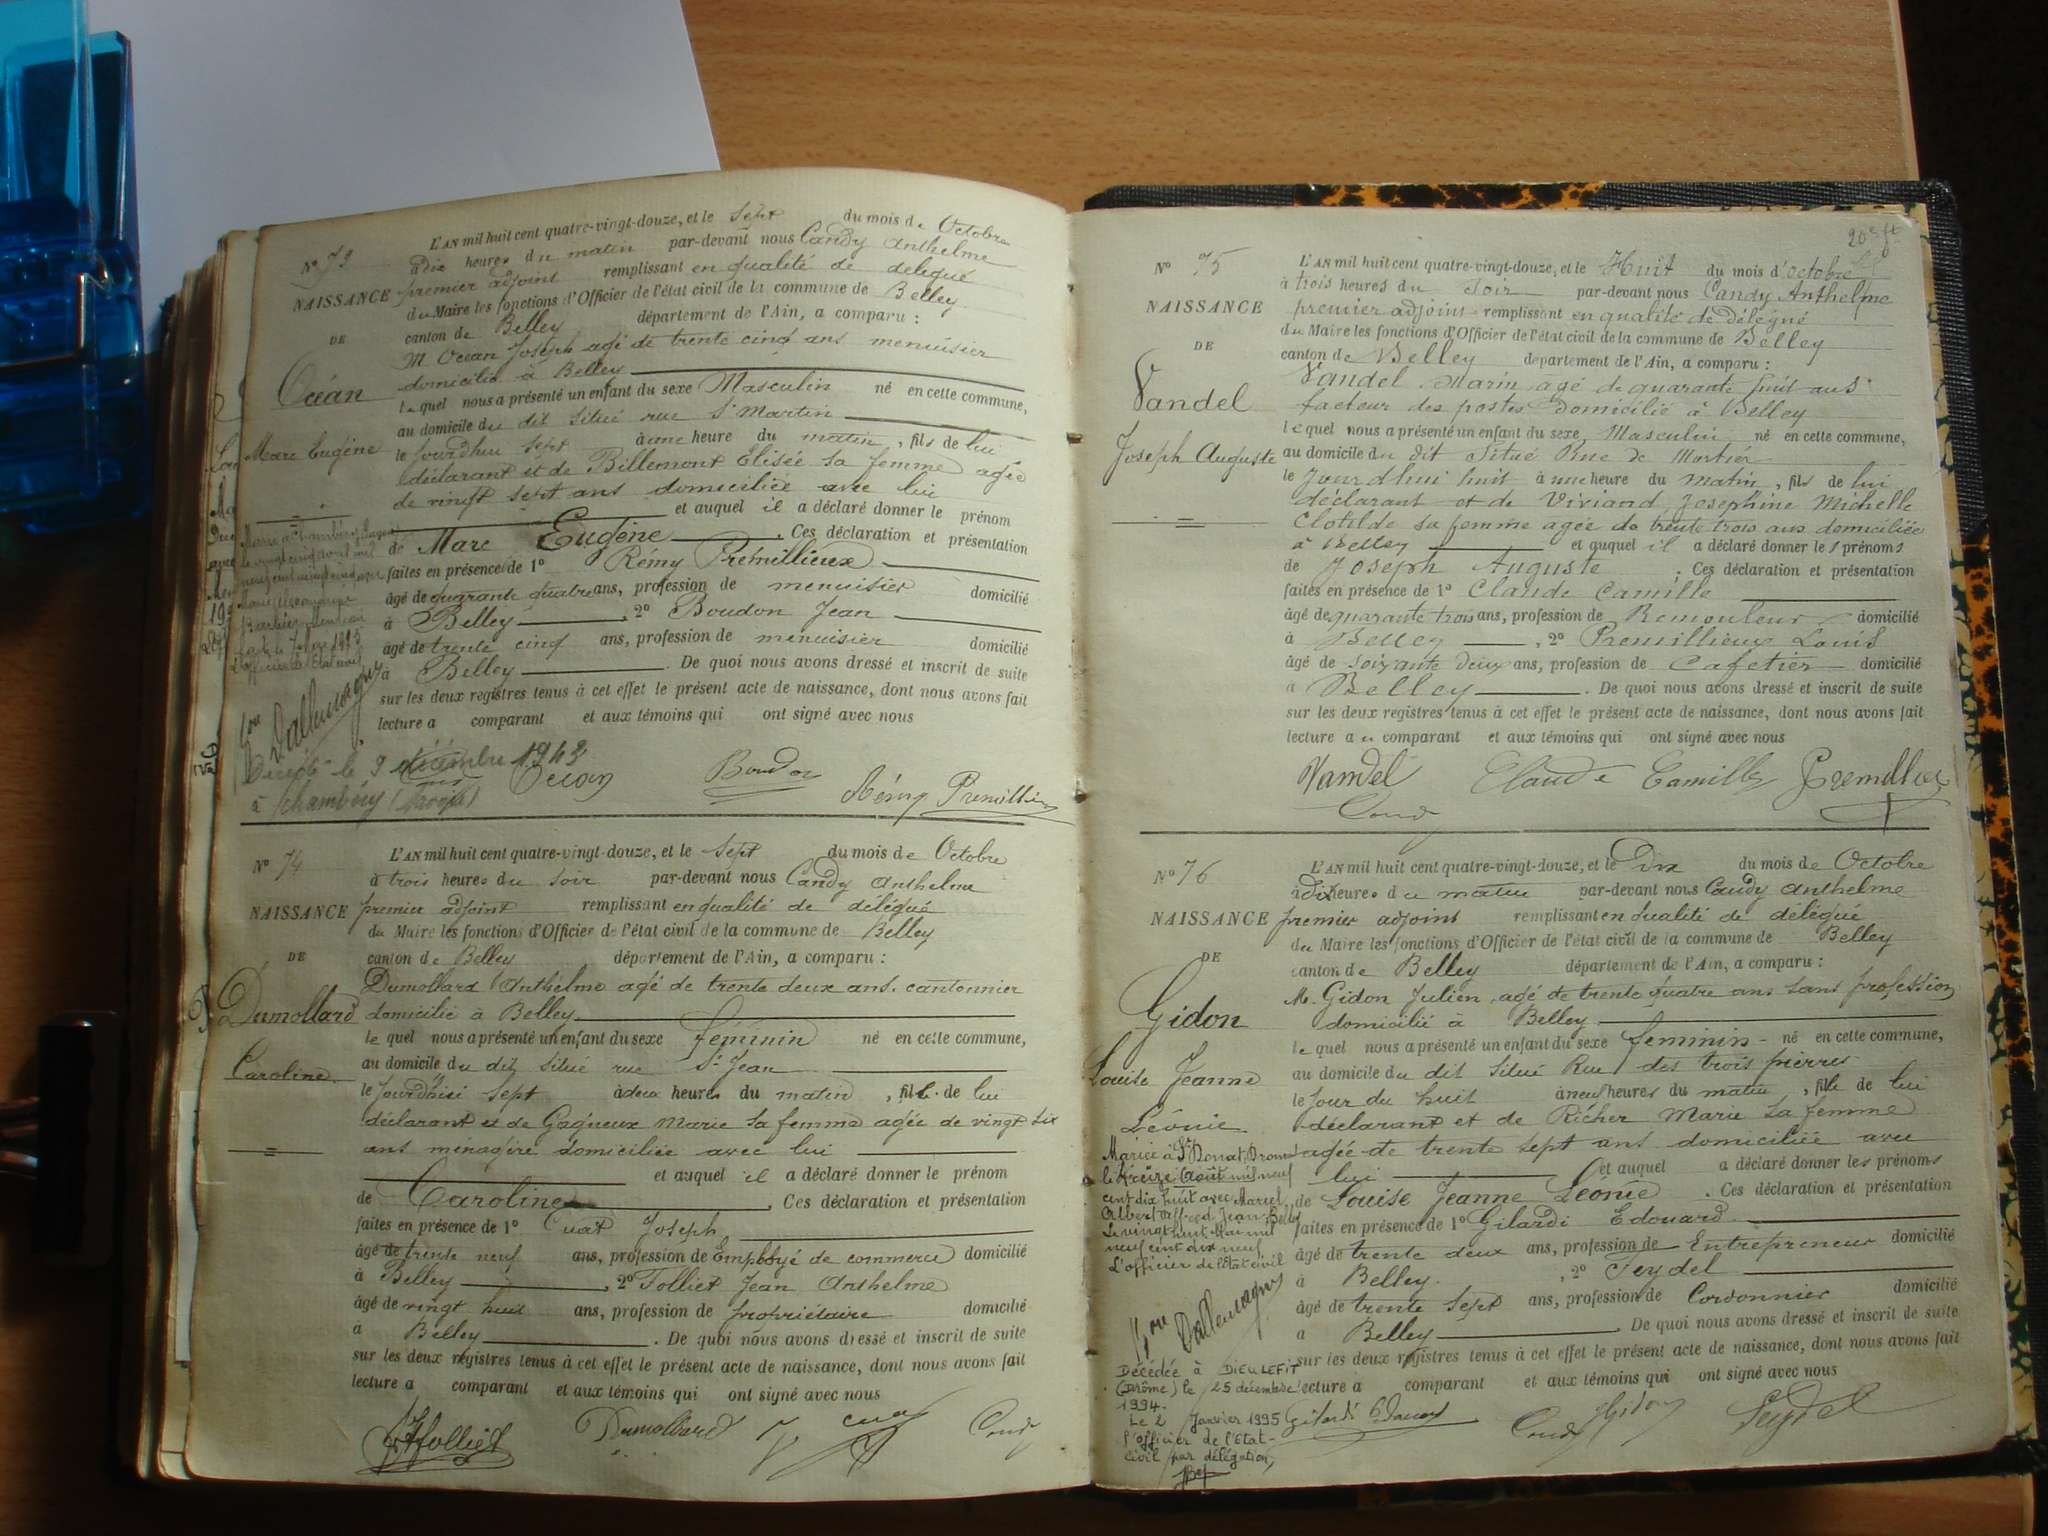 N° 73
NAISSANCE
DE
Océan
Marc Eugène
L'AN mil huit cent quatre-vingt-douze, et le Sept du mois de Octobre
à dix heures du matin par-devant nous Candy Anthelme
premier adjoint remplissant en qualité de délégué
du Maire les fonctions d'Officier de l'état civil de la commune de Belley
canton de Belley département de l'Ain, a comparu :
M. Océan Joseph agé de trente cinq ans menuisier
domicilié à Belley
lequel nous a présenté un enfant du sexe Masculin né en cette commune,
au domicile du dit situé rue St Martin
le jourdhui sept à une heure du matin, fils de lui
déclarant et de Billemont Elisée sa femme agée
de vingt sept ans domiciliée avec lui
et auquel il a déclaré donner le prénom
de Marc Eugène. Ces déclaration et présentation
faites en présence de 1° Rémy Prémillieux
âgé de quarante quatre ans, profession de menuisier domicilié
à Belley, 2° Boudon Jean
âgé de trente cinq ans, profession de menuisier domicilié
à Belley. De quoi nous avons dressé et inscrit de suite
sur les deux registres tenus à cet effet le présent acte de naissance, dont nous avons fait
lecture a comparant et aux témoins qui ont signé avec nous
Dallemagne
Décédé le 9 décembre 1943
à Chambéry (Savoie)
Océan Boudon
Rémy Premillieux
N° 74
NAISSANCE
DE
Dumollard
Caroline
L'AN mil huit cent quatre-vingt-douze, et le Sept du mois de Octobre
à trois heures du soir par-devant nous Candy Anthelme
premier adjoint remplissant en qualité de délégué
du Maire les fonctions d'Officier de l'état civil de la commune de Belley
canton de Belley département de l'Ain, a comparu :
Dumollard Anthelme agé de trente deux ans. cantonnier
domicilié à Belley
lequel nous a présenté un enfant du sexe féminin né en cette commune,
au domicile du dit situé rue St Jean
le jourdhui sept à deux heures du matin, fille de lui
déclarant et de Gagneux Marie sa femme agée de vingt six
ans ménagère domiciliée avec lui
et auquel il a déclaré donner le prénom
de Caroline. Ces déclaration et présentation
faites en présence de 1° Cuat Joseph
âgé de trente neuf ans, profession de Employé de commerce domicilié
à Belley, 2° Tolliet Jean Anthelme
âgé de vingt huit ans, profession de propriétaire domicilié
a Belley. De quoi nous avons dressé et inscrit de suite
sur les deux registres tenus à cet effet le présent acte de naissance, dont nous avons fait
lecture a comparant et aux témoins qui ont signé avec nous
Tolliet Dumollard Cuat Candy
20e ft
N° 75
NAISSANCE
DE
Vandel
Joseph Auguste
L'AN mil huit cent quatre-vingt-douze, et le Huit du mois d'octobre
à trois heures du soir par-devant nous Candy Anthelme
premier adjoint remplissant en qualité de délégué
du Maire les fonctions d'Officier de l'état civil de la commune de Belley
canton de Belley département de l'Ain, a comparu :
Vandel Marin agé de quarante huit ans
facteur des postes domicilié à Belley
lequel nous a présenté un enfant du sexe Masculin né en cette commune,
au domicile du dit situé Rue de Mortier
le Jourdhui huit à une heure du matin, fils de lui
déclarant et de Viviand Joséphine Michelle
Clotilde sa femme agée de trente trois ans domiciliée
à Belley et auquel il a déclaré donner les prénoms
de Joseph Auguste. Ces déclaration et présentation
faites en présence de 1° Claude Camille
âgé de quarante trois ans, profession de Remouleur domicilié
à Belley, 2° Premillieux Louis
âgé de soixante deux ans, profession de Cafetier domicilié
à Belley. De quoi nous avons dressé et inscrit de suite
sur les deux registres tenus à cet effet le présent acte de naissance, dont nous avons fait
lecture au comparant et aux témoins qui ont signé avec nous
Vandel Claude Camille Premillieux
Candy
N° 76
NAISSANCE
DE
Gidon
Louise Jeanne
Léonie
L'AN mil huit cent quatre-vingt-douze, et le Dix du mois de Octobre
à dix heures du matin par-devant nous Candy Anthelme
premier adjoint remplissant en qualité de délégué
du Maire les fonctions d'Officier de l'état civil de la commune de Belley
canton de Belley département de l'Ain, a comparu :
M. Gidon Julien agé de trente quatre ans sans profession
domicilié à Belley
lequel nous a présenté un enfant du sexe féminin né en cette commune,
au domicile du dit situé Rue des trois pierres
le jour du huit à neuf heures du matin, fille de lui
déclarant et de Richer Marie sa femme
agée de trente sept ans domiciliée avec
lui et auquel a déclaré donner les prénoms
de Louise Jeanne Léonie. Ces déclaration et présentation
faites en présence de 1° Gilardi Edouard
âgé de trente deux ans, profession de Entrepreneur domicilié
à Belley. , 2° Seydel
âgé de trente sept ans, profession de Cordonnier domicilié
a Belley. De quoi nous avons dressé et inscrit de suite
sur les deux registres tenus à cet effet le présent acte de naissance, dont nous avons fait
lecture a comparant et aux témoins qui ont signé avec nous
Mariée à St Donat, Drome
le treize août mil neuf
cent dix huit avec Marcel
Albert
Le vingt huit Mai mil
neuf cent dix neuf
L'officier de l'état civil
Dallemagne
Décédée à DIEULEFIT
(Drôme) le 25 décembre
1994.
Le 2 Janvier 1995
l'officier de l'Etat-
civil par délégation,
Gilardi Candy Gidon Seydel